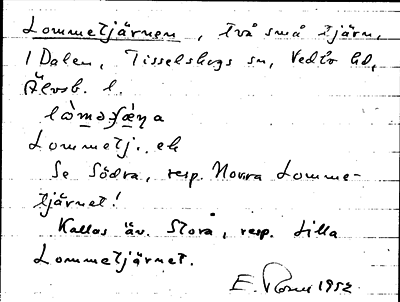 Lommetjärnen, två små tjärn,
i Dalen, Tisselskogs sn, Vedbo hd,
Älvsb. l.
Lommetj., ek
Se Södra, resp. Norra Lomme-
tjärnet!
Kallas äv. Stora, resp. Lilla
Lommetjärnet.
E. 1952